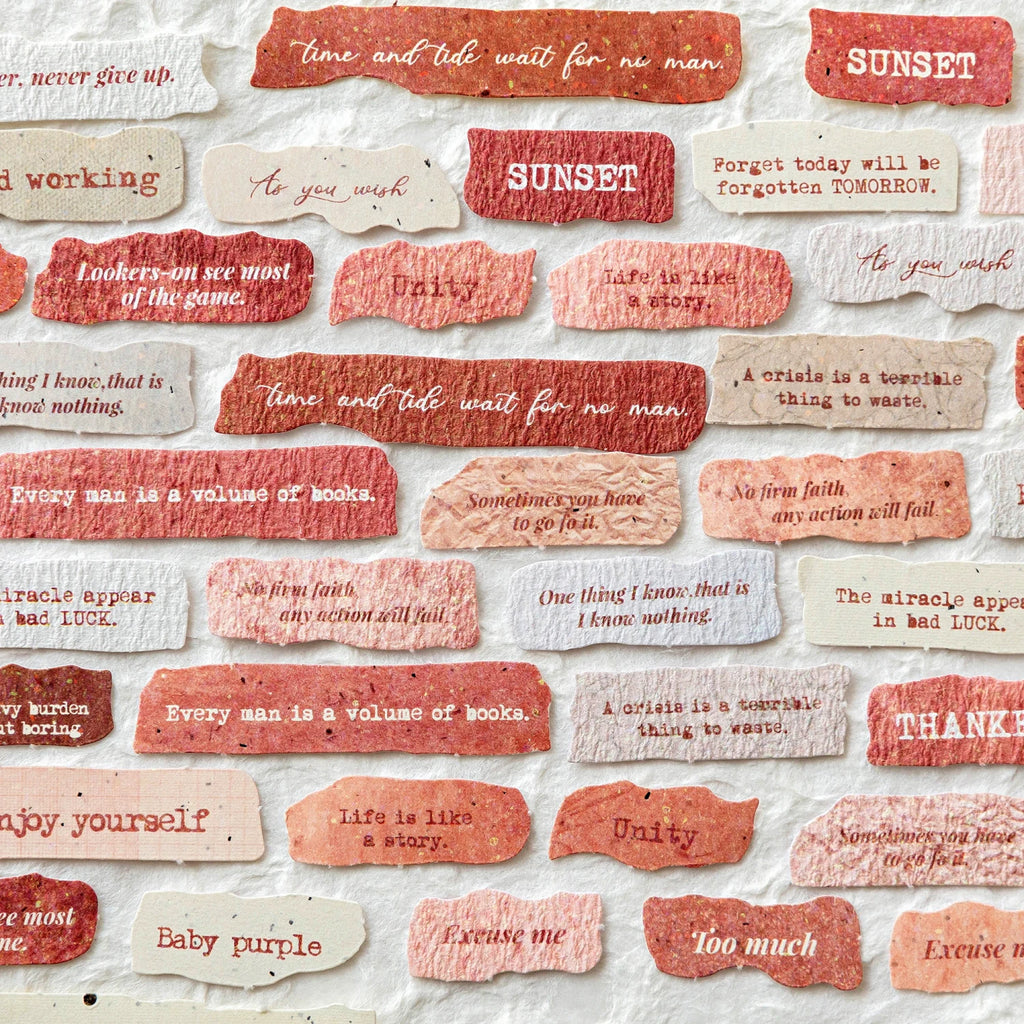 er, never give up.
time and tide wait for no man.
SUNSET
d working
As you wish
SUNSET
Forget today will be
forgotten TOMORROW.
Lookers-on see most
of the game.
Unity
Life is like
a story.
As you wish
hing I know,that is
know nothing.
time and tide wait for no man.
A crisis is a terrible
thing to waste.
Every man is a volume of books.
Sometimes you have
to go fo it.
No firm faith
any action will fail.
iracle appear
n bad LUCK.
No firm faith,
any action will fail.
One thing I know,that is
I know nothing.
The miracle appea
in bad LUCK.
vy burden
ut boring
Every man is a volume of books.
A crisis is a terrible
thing to waste.
THANKE
njoy yourself
Life is like
a story.
Unity
Sometimes you have
to go fo it.
ee most
me.
Baby purple
Excuse me
Too much
Excuse m